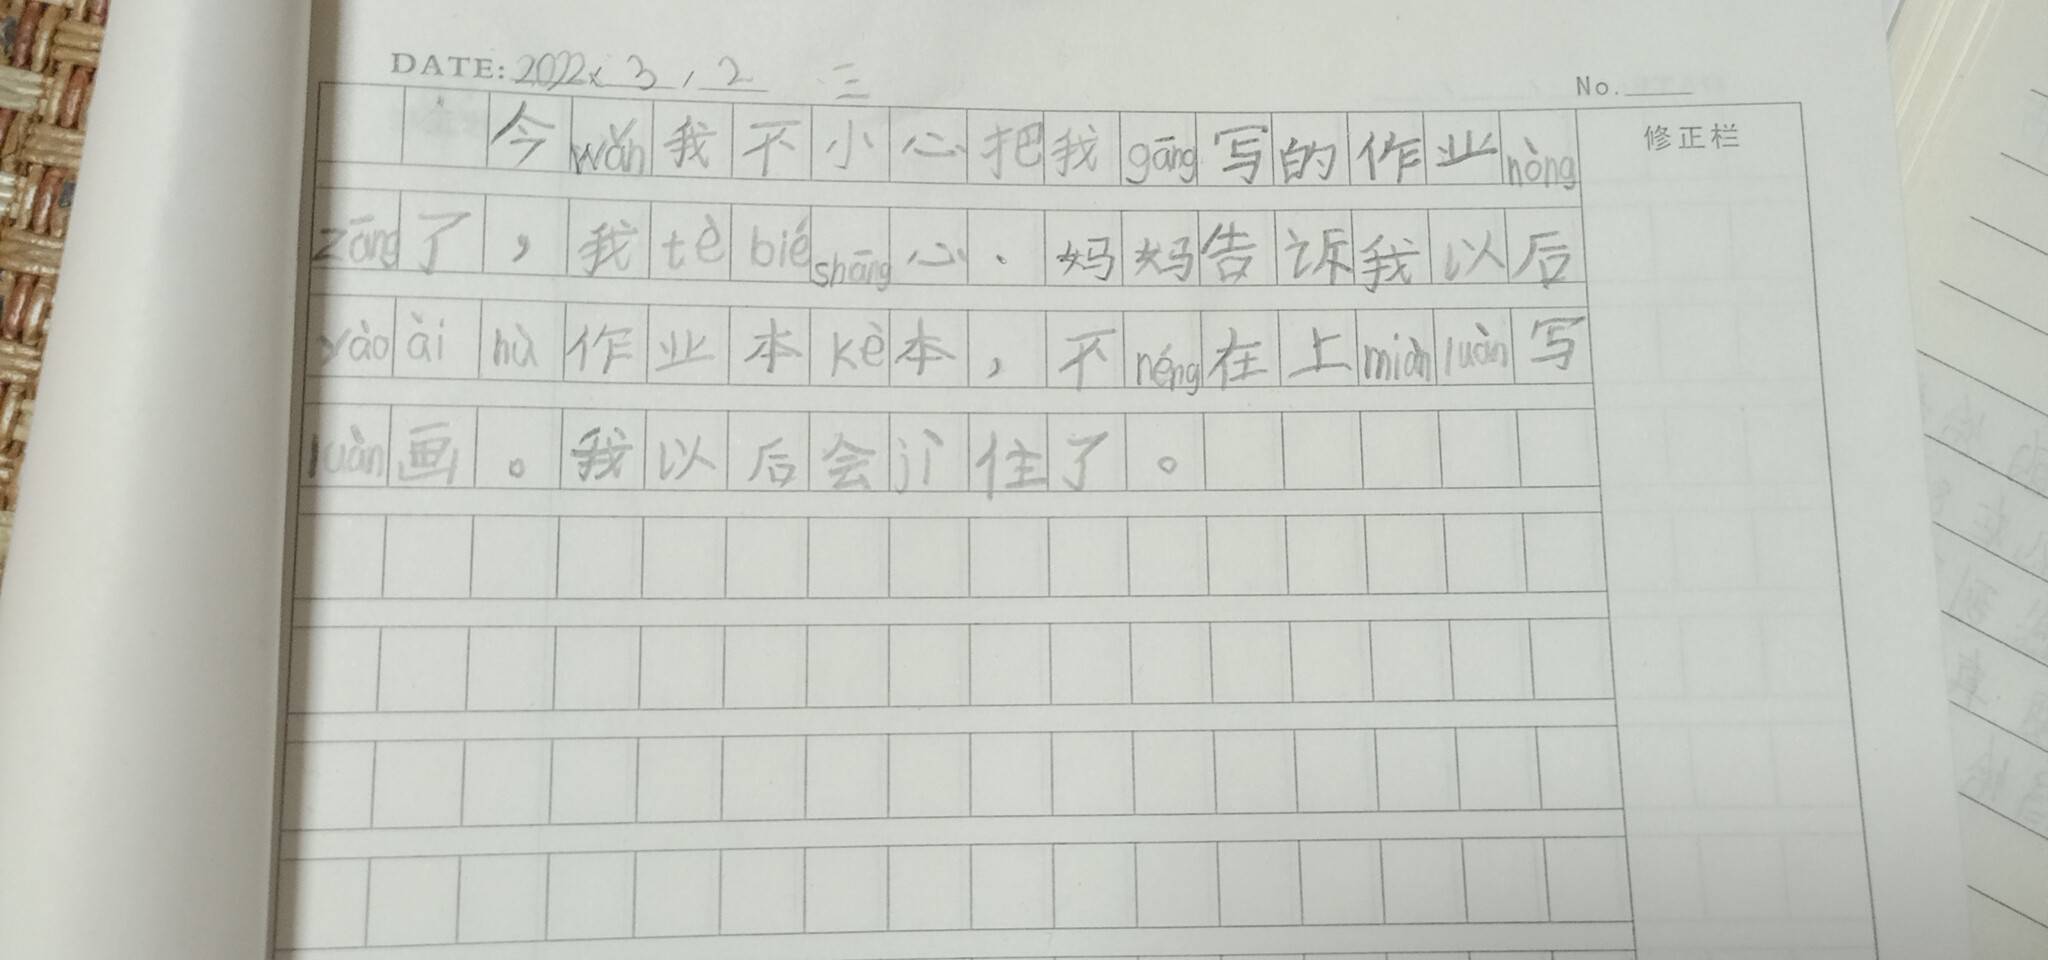 DATE: 2022. 3. 2 三 No.
修正栏
今wǎn我不小心把我gāng写的作业nòng
zāng了，我tè bié shāng心、妈妈告诉我以后
yào ài hù作业本kè本，不néng在上miàn luàn写
luàn画。我以后会记住了。